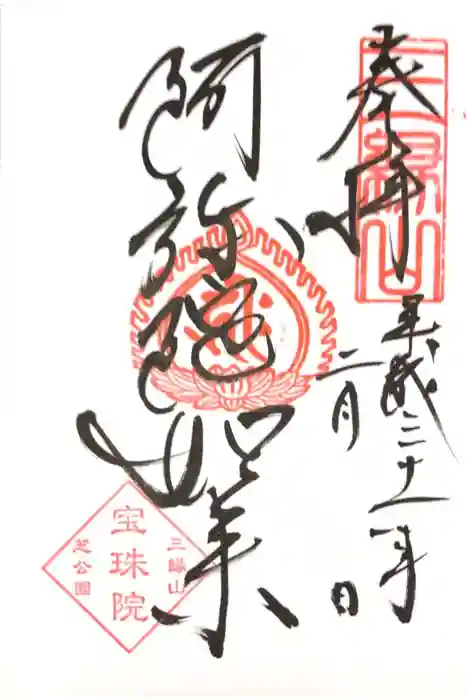 奉拝
三縁山
平成三十一年
二月 日
阿弥陀如来
三縁山
宝珠院
芝公園